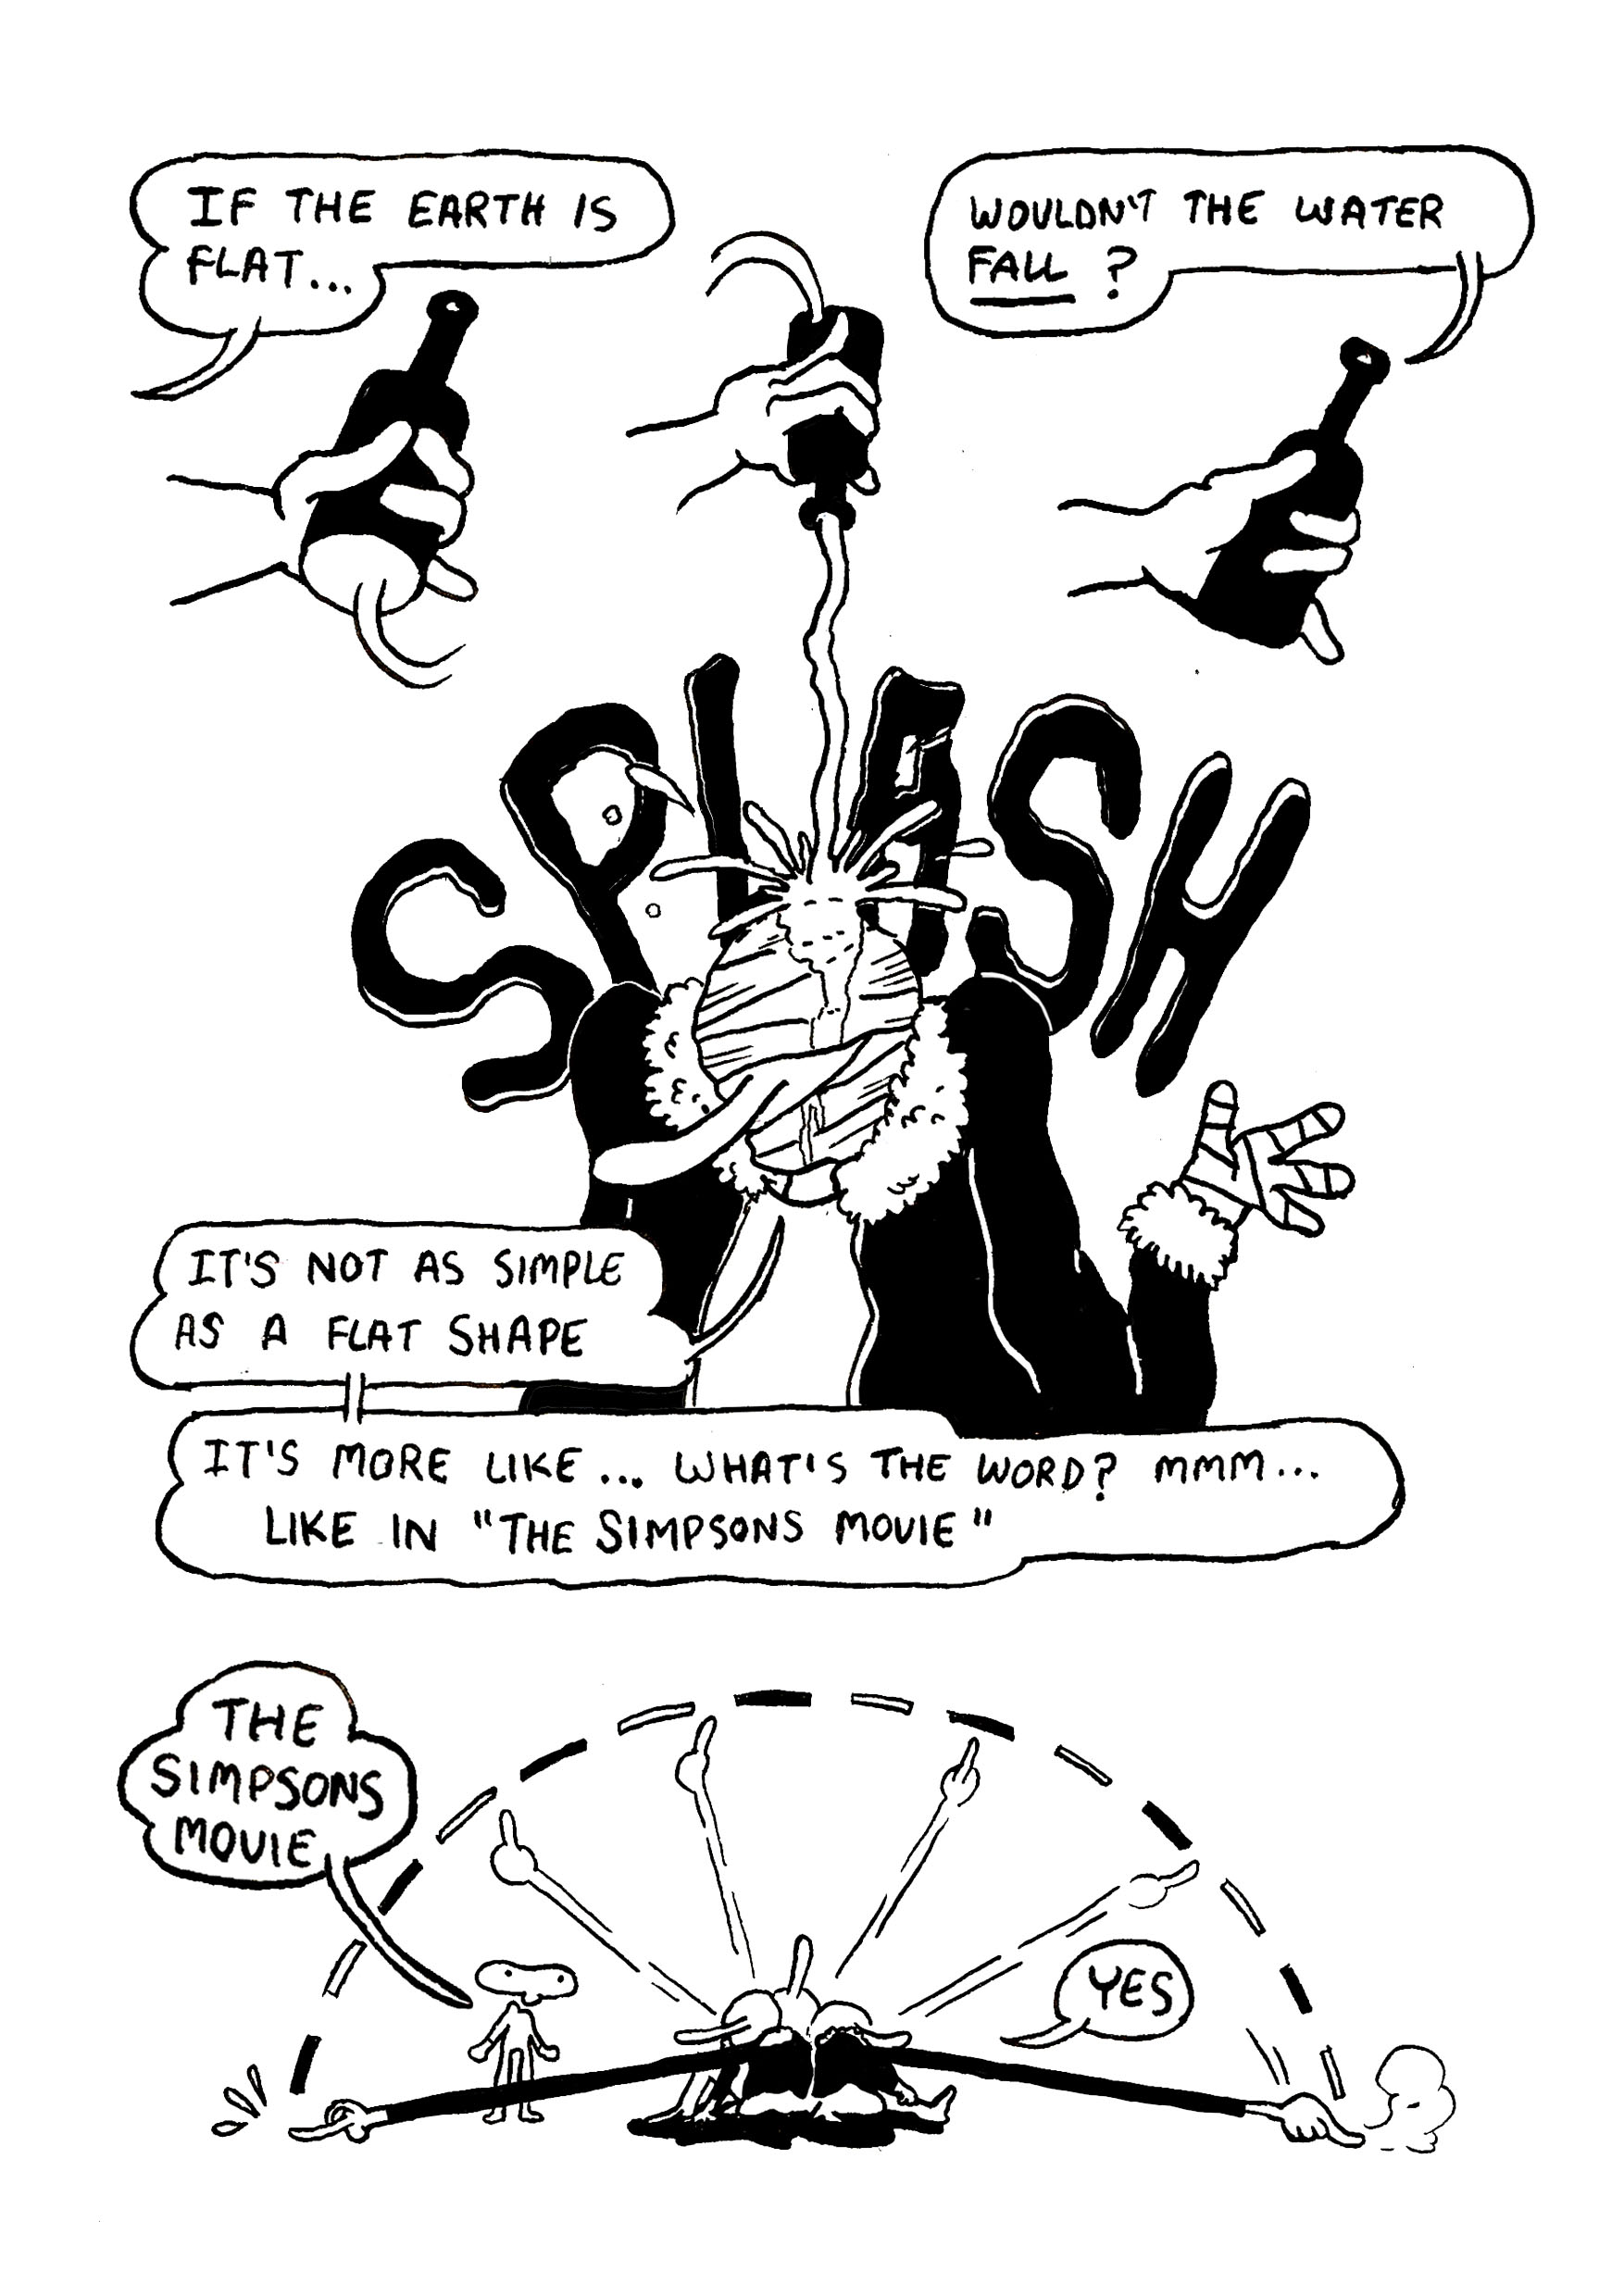 IF THE EARTH IS
FLAT...
WOULDN'T THE WATER
FALL ?
SPLASH
IT'S NOT AS SIMPLE
AS A FLAT SHAPE
IT'S MORE LIKE... WHAT'S THE WORD? MMM...
LIKE IN "THE SIMPSONS MOVIE"
THE
SIMPSONS
MOVIE
YES